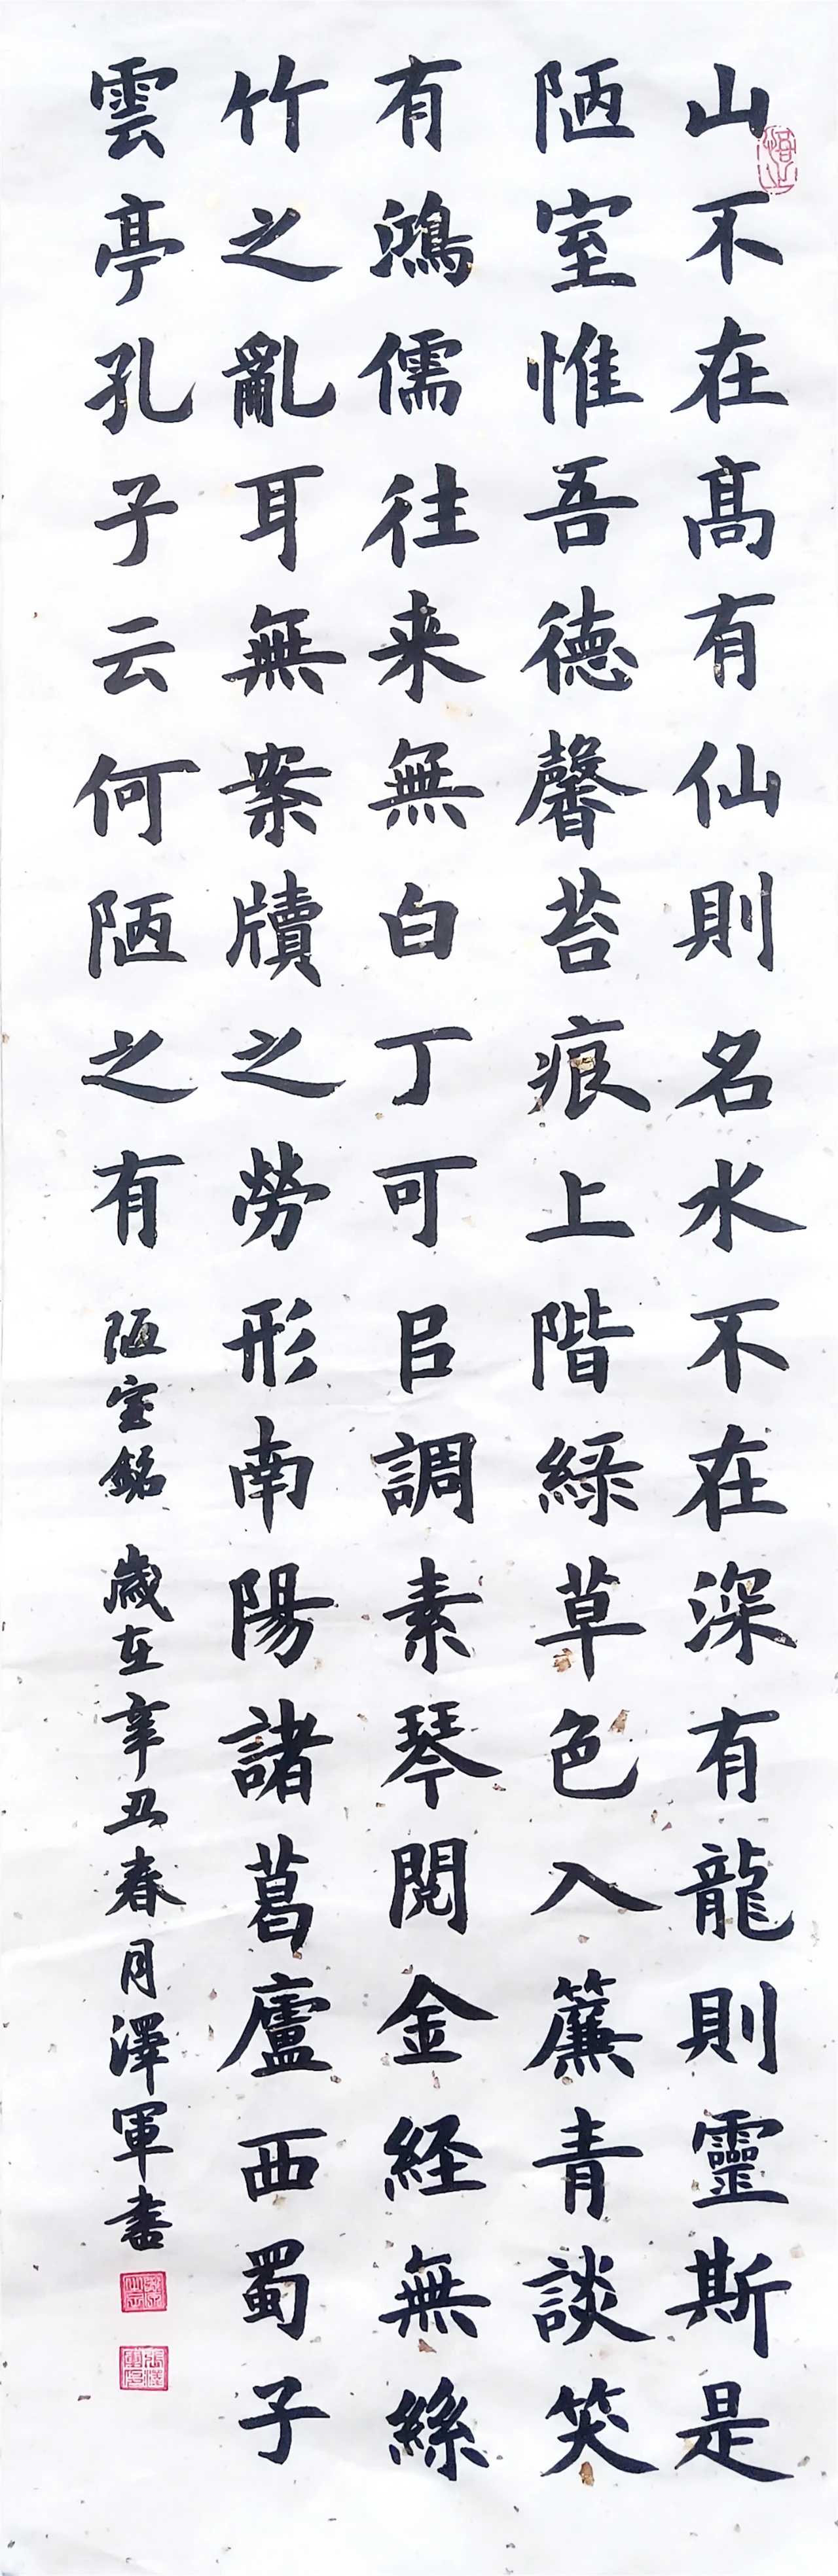 山不在高有仙則名水不在深有龍則靈斯是
陋室惟吾德馨苔痕上階緑草色入簾青談笑
有鴻儒往来無白丁可㠯調素琴閱金経無絲
竹之亂耳無案牘之勞形南陽諸葛廬西蜀子
雲亭孔子云何陋之有 陋室銘 歲在辛丑春月澤軍書